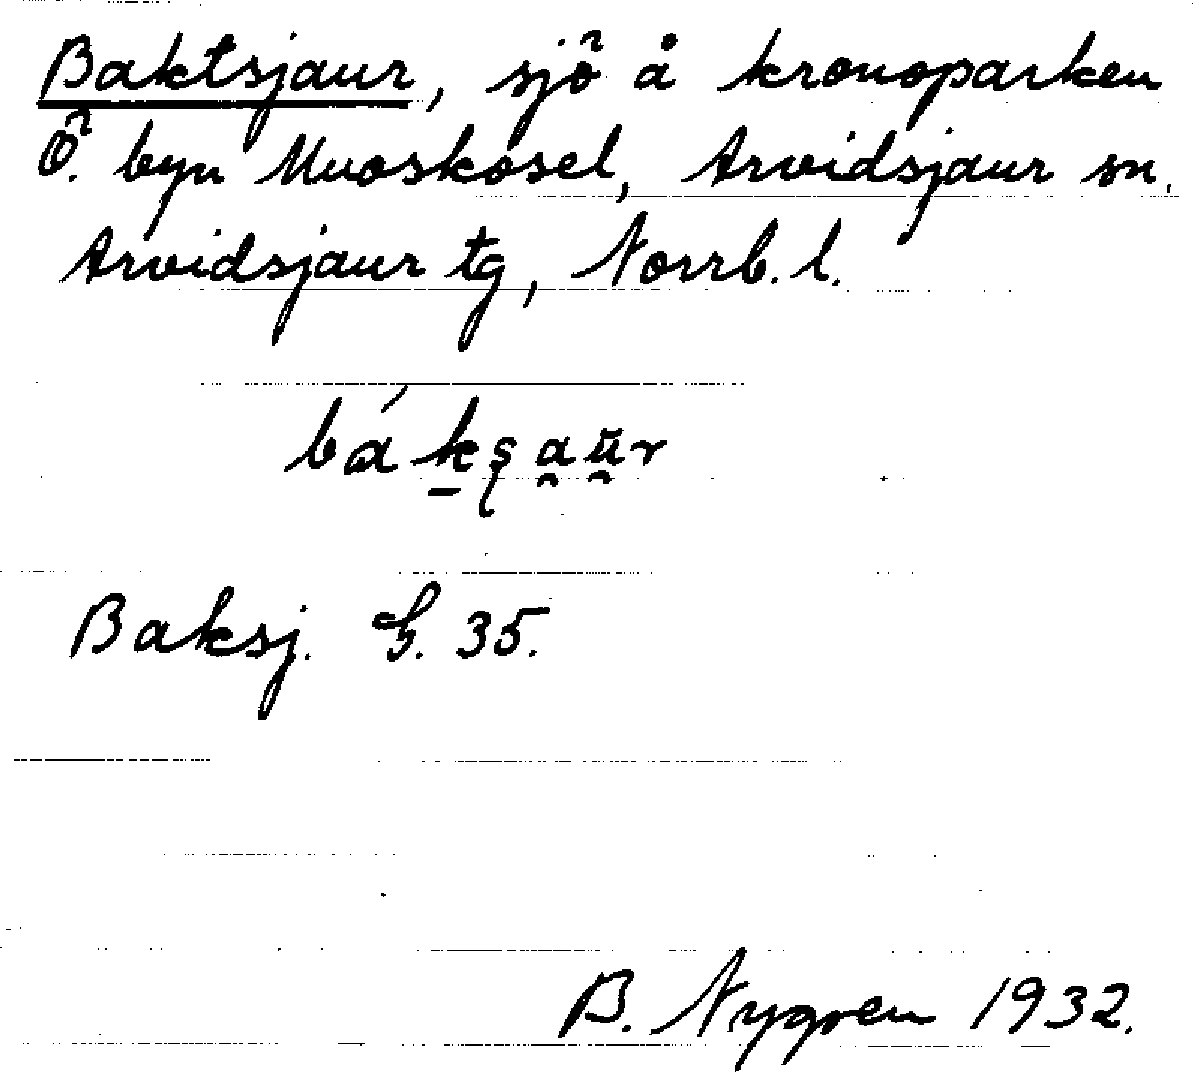 Baktsjaur, sjö å kronoparken
Ö. byn Muoskosel, Arvidsjaur sn.
Arvidsjaur tg, Norrb. l.
bák̠ʂa̯ŭ̯r
Baksj. G. 35.
B. Nygren 1932.